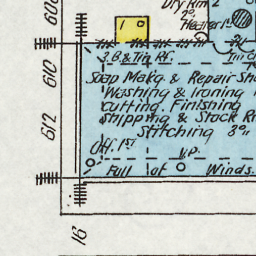 606
Dry Rm 2
2°
Heater 1st
1
3.B & Tin Rf.
610
Soap Makg & Repair Sh
Washing & Ironing
Cutting. Finishing
612
Shipping & Stock R
Stitching 3°
Off. 1st
V.P.
Full of Winds.
16